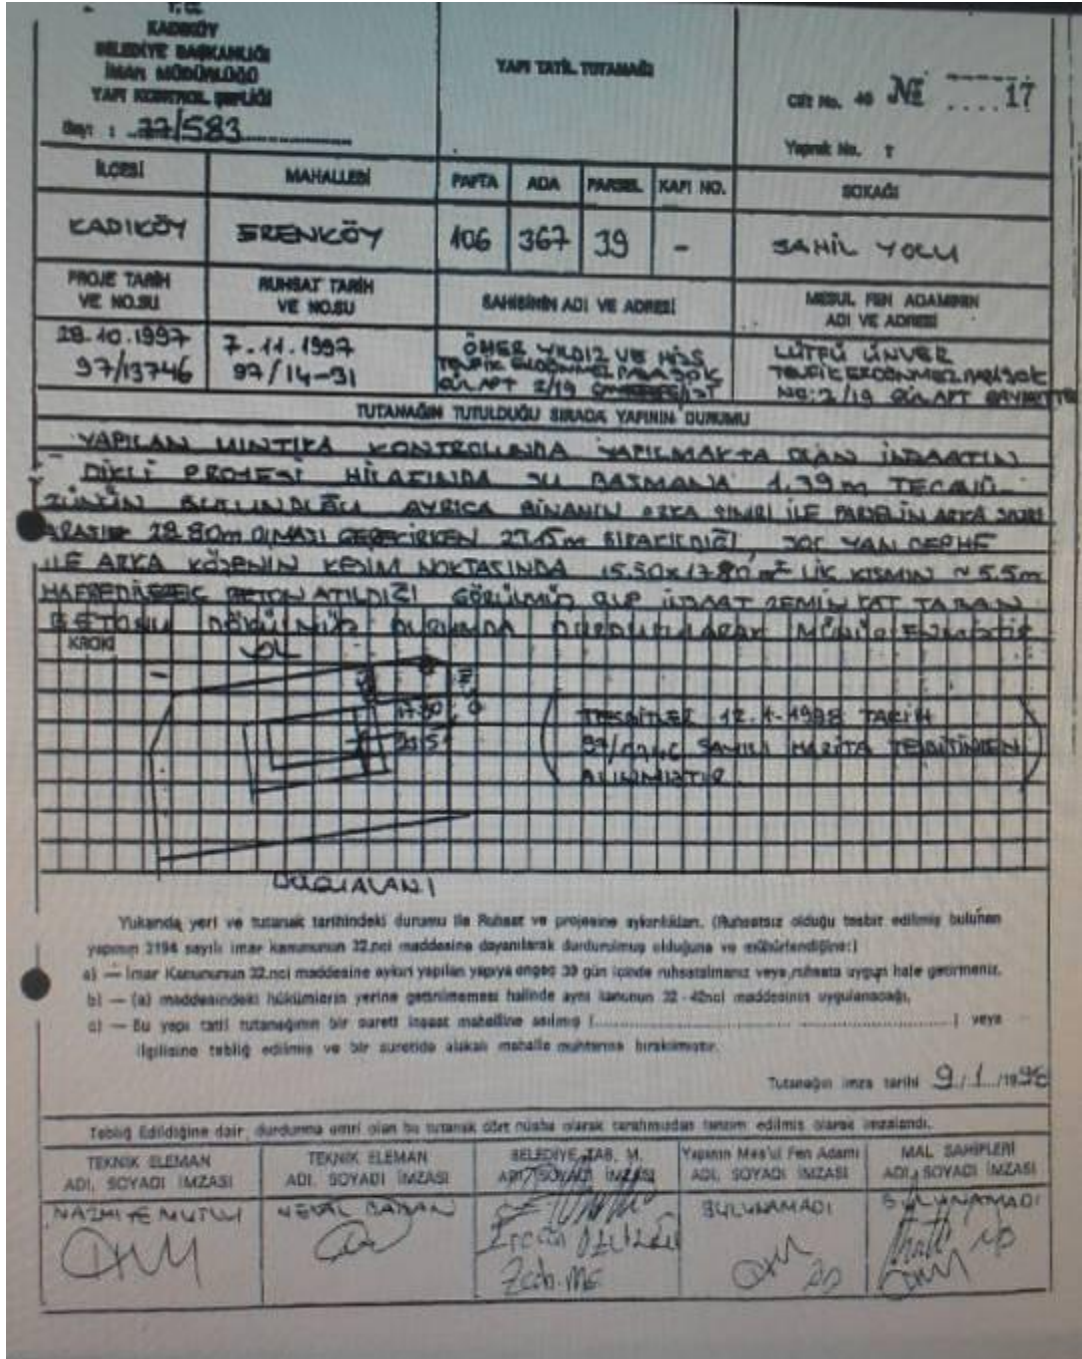 T.C.
KADIKÖY
BELEDİYE BAŞKANLIĞI
İMAR MÜDÜRLÜĞÜ
YAPI KONTROL ŞEFLİĞİ
Sayı : 77/583
YAPI TATİL TUTANAĞI
Cilt No. 40 No 17
Yaprak No.
İLÇESİ MAHALLESİ PAFTA ADA PARSEL KAPI NO. SOKAĞI
KADIKÖY ERENKÖY 106 367 39 - SAHİL YOLU
PROJE TARİH VE NO.SU
RUHSAT TARİH VE NO.SU
SAHİBİNİN ADI VE ADRESİ
MESUL FEN ADAMININ ADI VE ADRESİ
28.10.1997
97/13746
7.11.1997
97/14-31
ÖMER YILDIZ VE HİS
TEVFİK ERDÖNMEZ PAŞA SOK
GÜL APT 2/19
LÜTFÜ ÜNVER
TEVFİK ERDÖNMEZ PAŞA SOK
NO: 2/19 GÜL APT
TUTANAĞIN TUTULDUĞU SIRADA YAPININ DURUMU
YAPILAN MINTIKA KONTROLUNDA YAPILMAKTA OLAN İNŞAATIN
PROJESİ HİLAFINDA SU BASMANA 1.39m TECAVÜ-
ZÜNÜN BULUNDUĞU AYRICA BİNANIN ARKA SINIRI İLE PARSELİN ARKA SINIRI
ARASI 28.80m OLMASI GEREKİRKEN BIRAKILDIĞI, YAN CEPHE
İLE ARKA KÖŞENİN KESİM NOKTASINDA 15.50x17.80 m² LİK KISMIN ~5.5m
HAFREDİLEREK BETON ATILDIĞI GÖRÜLMÜŞ OLUP İNŞAAT ZEMİN KAT TABAN
BETONU DÖKÜLMÜŞ DURUMDA DURDURULARAK
KROKİ
YOL
17.80
TESBİTLER 12.1.1998 TARİH
SAYILI HARİTA TESBİTİNDEN
ALINMIŞTIR
Yukarıda yeri ve tutanak tarihindeki durumu ile Ruhsat ve projesine aykırılıkları. (Ruhsatsız olduğu tesbit edilmiş bulunan
yapının 3194 sayılı imar kanununun 32.nci maddesine dayanılarak durdurulmuş olduğuna ve mühürlendiğine:)
a) — İmar Kanununun 32.nci maddesine aykırı yapılan yapıya engeç 30 gün içinde ruhsatalmanız veya ruhsata uygun hale getirmeniz.
b) — (a) maddesindeki hükümlerin yerine getirilmemesi halinde aynı kanunun 32 - 42nci maddesinin uygulanacağı,
c) — Bu yapı tatil tutanağının bir sureti inşaat mahalline asılmış (........................................) veya
ilgilisine tebliğ edilmiş ve bir suretide alakalı mahalle muhtarına bırakılmıştır.
Tutanağın imza tarihi 9/1/1998
Tebliğ Edildiğine dair, durdurma emri olan bu tutanak dört nüsha olarak tarafımızdan tanzim edilmiş olarak imzalandı.
TEKNİK ELEMAN ADI, SOYADI İMZASI
TEKNİK ELEMAN ADI, SOYADI İMZASI
BELEDİYE ZAB. M. ADI, SOYADI İMZASI
Yapının Mes'ul Fen Adamı ADI, SOYADI İMZASI
MAL SAHİPLERİ ADI, SOYADI İMZASI
NAZMİYE MUTLU
BULUNAMADI
BULUNAMADI
Zab. Me